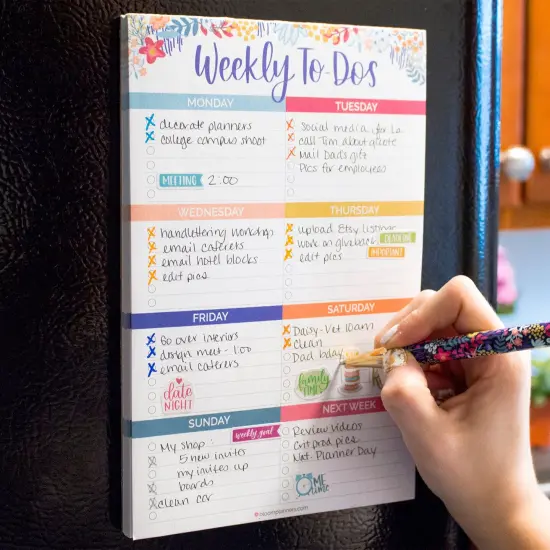 Weekly To-Dos
MONDAY
decorate planners
college campus shoot
MEETING 2:00
TUESDAY
Social media for La
call Tim about quote
Mail Dad's gift
Pics for employees
WEDNESDAY
handlettering workshop
email caterers
email hotel blocks
edit pics
THURSDAY
upload Etsy listing
work on giveback DEADLINE
edit pics IMPORTANT
FRIDAY
Go over interiors
design meet - 1:00
email caterers
date
NIGHT
SATURDAY
Daisy-Vet 10am
clean
Dad bday
family
TIME
SUNDAY
weekly goal
My shop:
5 new invites
my invites up
boards
clean car
NEXT WEEK
Review Videos
Cnt prod pics
Nat. Planner Day
ME
time
bloomplanners.com